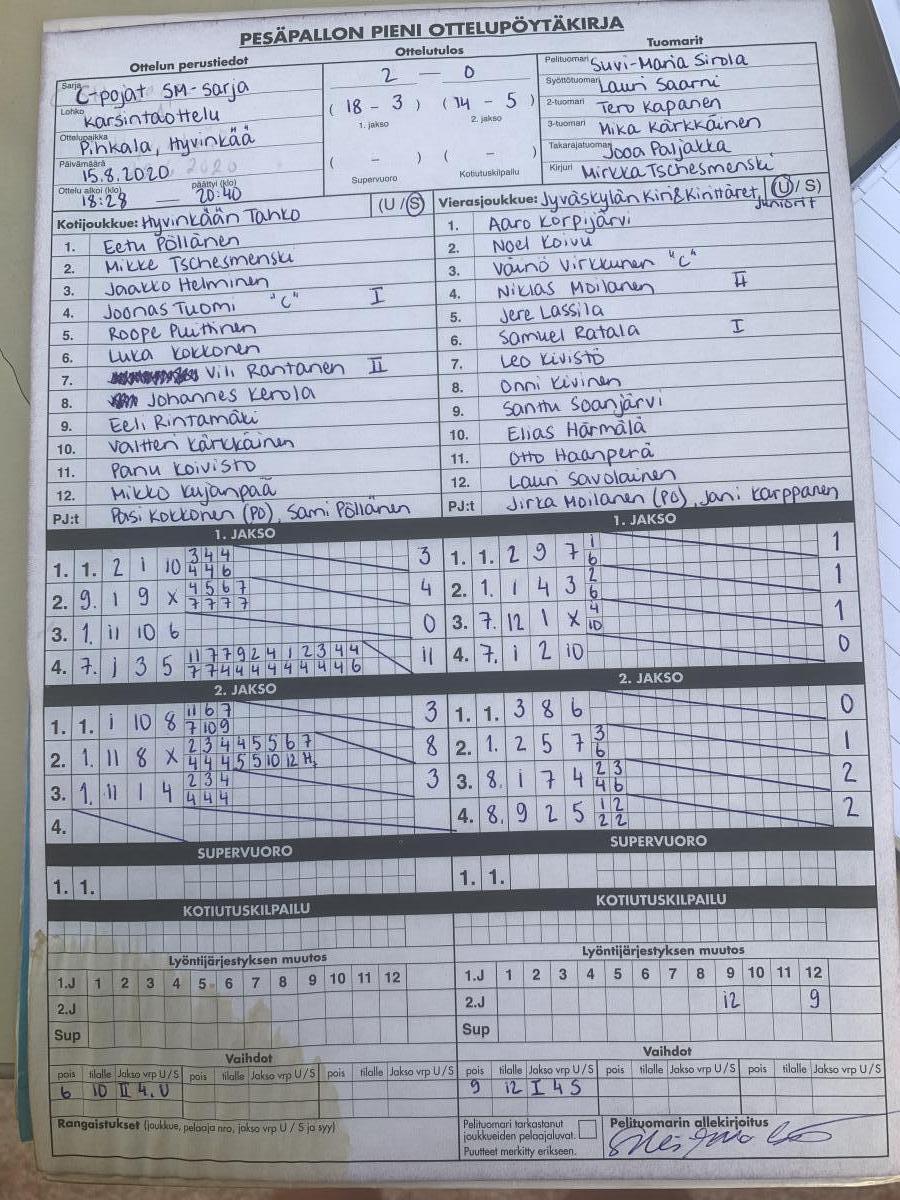 PESÄPALLON PIENI OTTELUPÖYTÄKIRJA
Ottelun perustiedot
Sarja C-pojat SM-sarja
Lohko Karsintaottelu
Ottelupaikka Pihkala, Hyvinkää
Päivämäärä 15.8.2020
Ottelu alkoi (klo) päättyi (klo)
18:28 — 20:40
Ottelutulos
2 — 0
( 18 - 3 ) ( 14 - 5 )
1. jakso 2. jakso
( - ) ( - )
Supervuoro Kotiutuskilpailu
Tuomarit
Pelituomari Suvi-Maria Sirola
Syöttötuomari Lauri Saarni
2-tuomari Tero Kapanen
3-tuomari Mika Kärkkäinen
Takarajatuomari Jooa Paljakka
Kirjuri Mirkka Tschesmenski
Kotijoukkue: Hyvinkään Tahko (U / S)
1. Eetu Pöllänen
2. Mikke Tschesmenski
3. Jaakko Helminen
4. Joonas Tuomi "C" I
5. Roope Puittinen
6. Luka Kokkonen
7. Vili Rantanen II
8. Johannes Kerola
9. Eeli Rintamäki
10. Valtteri Kärkkäinen
11. Panu Koivisto
12. Mikko Kujanpää
PJ:t Pasi Kokkonen (PO), Sami Pöllänen
Vierasjoukkue: Jyväskylän Kiri&Kirittäret, juniorit (U / S)
1. Aaro Korpijärvi
2. Noel Koivu
3. Väinö Virkkunen "C"
4. Niklas Moilanen II
5. Jere Lassila
6. Samuel Ratala I
7. Leo Kivistö
8. Onni Kivinen
9. Santtu Soanjärvi
10. Elias Härmälä
11. Otto Haanperä
12. Lauri Savolainen
PJ:t Jirka Moilanen (PO), Jani Karppanen
1. JAKSO
1. 1. 2 1 10 3 4 4 3
4 4 6
2. 9. 1 9 X 4 5 6 7 4
7 7 7 7
3. 1. 11 10 6 0
4. 7. 1 3 5 11 7 7 9 2 4 1 2 3 4 4 11
7 7 4 4 4 4 4 4 4 4 6
1. JAKSO
1. 1. 2 9 7 1 1
6
2. 1. 1 4 3 2 1
6
3. 7. 12 1 X 4 1
10
4. 7. 1 2 10 0
2. JAKSO
1. 1. 1 10 8 11 6 7 3
7 10 9
2. 1. 11 8 X 2 3 4 4 5 5 6 7 8
4 4 4 5 5 10 12
3. 1. 11 1 4 2 3 4 3
4 4 4
4.
2. JAKSO
1. 1. 3 8 6 0
2. 1. 2 5 7 3 1
6
3. 8. 1 7 4 2 3 2
4 6
4. 8. 9 2 5 1 2 2
2 2
SUPERVUORO
1. 1.
SUPERVUORO
1. 1.
KOTIUTUSKILPAILU
KOTIUTUSKILPAILU
Lyöntijärjestyksen muutos
1.J 1 2 3 4 5 6 7 8 9 10 11 12
2.J
Sup
Lyöntijärjestyksen muutos
1.J 1 2 3 4 5 6 7 8 9 10 11 12
2.J 12 9
Sup
Vaihdot
pois tilalle Jakso vrp U / S pois tilalle Jakso vrp U / S pois tilalle Jakso vrp U / S
6 10 II 4. U
Vaihdot
pois tilalle Jakso vrp U / S pois tilalle Jakso vrp U / S pois tilalle Jakso vrp U / S
9 12 I 4 S
Rangaistukset (joukkue, pelaaja nro, jakso vrp U / S ja syy)
Pelituomari tarkastanut
joukkueiden pelaajaluvat.
Puutteet merkitty erikseen.
Pelituomarin allekirjoitus